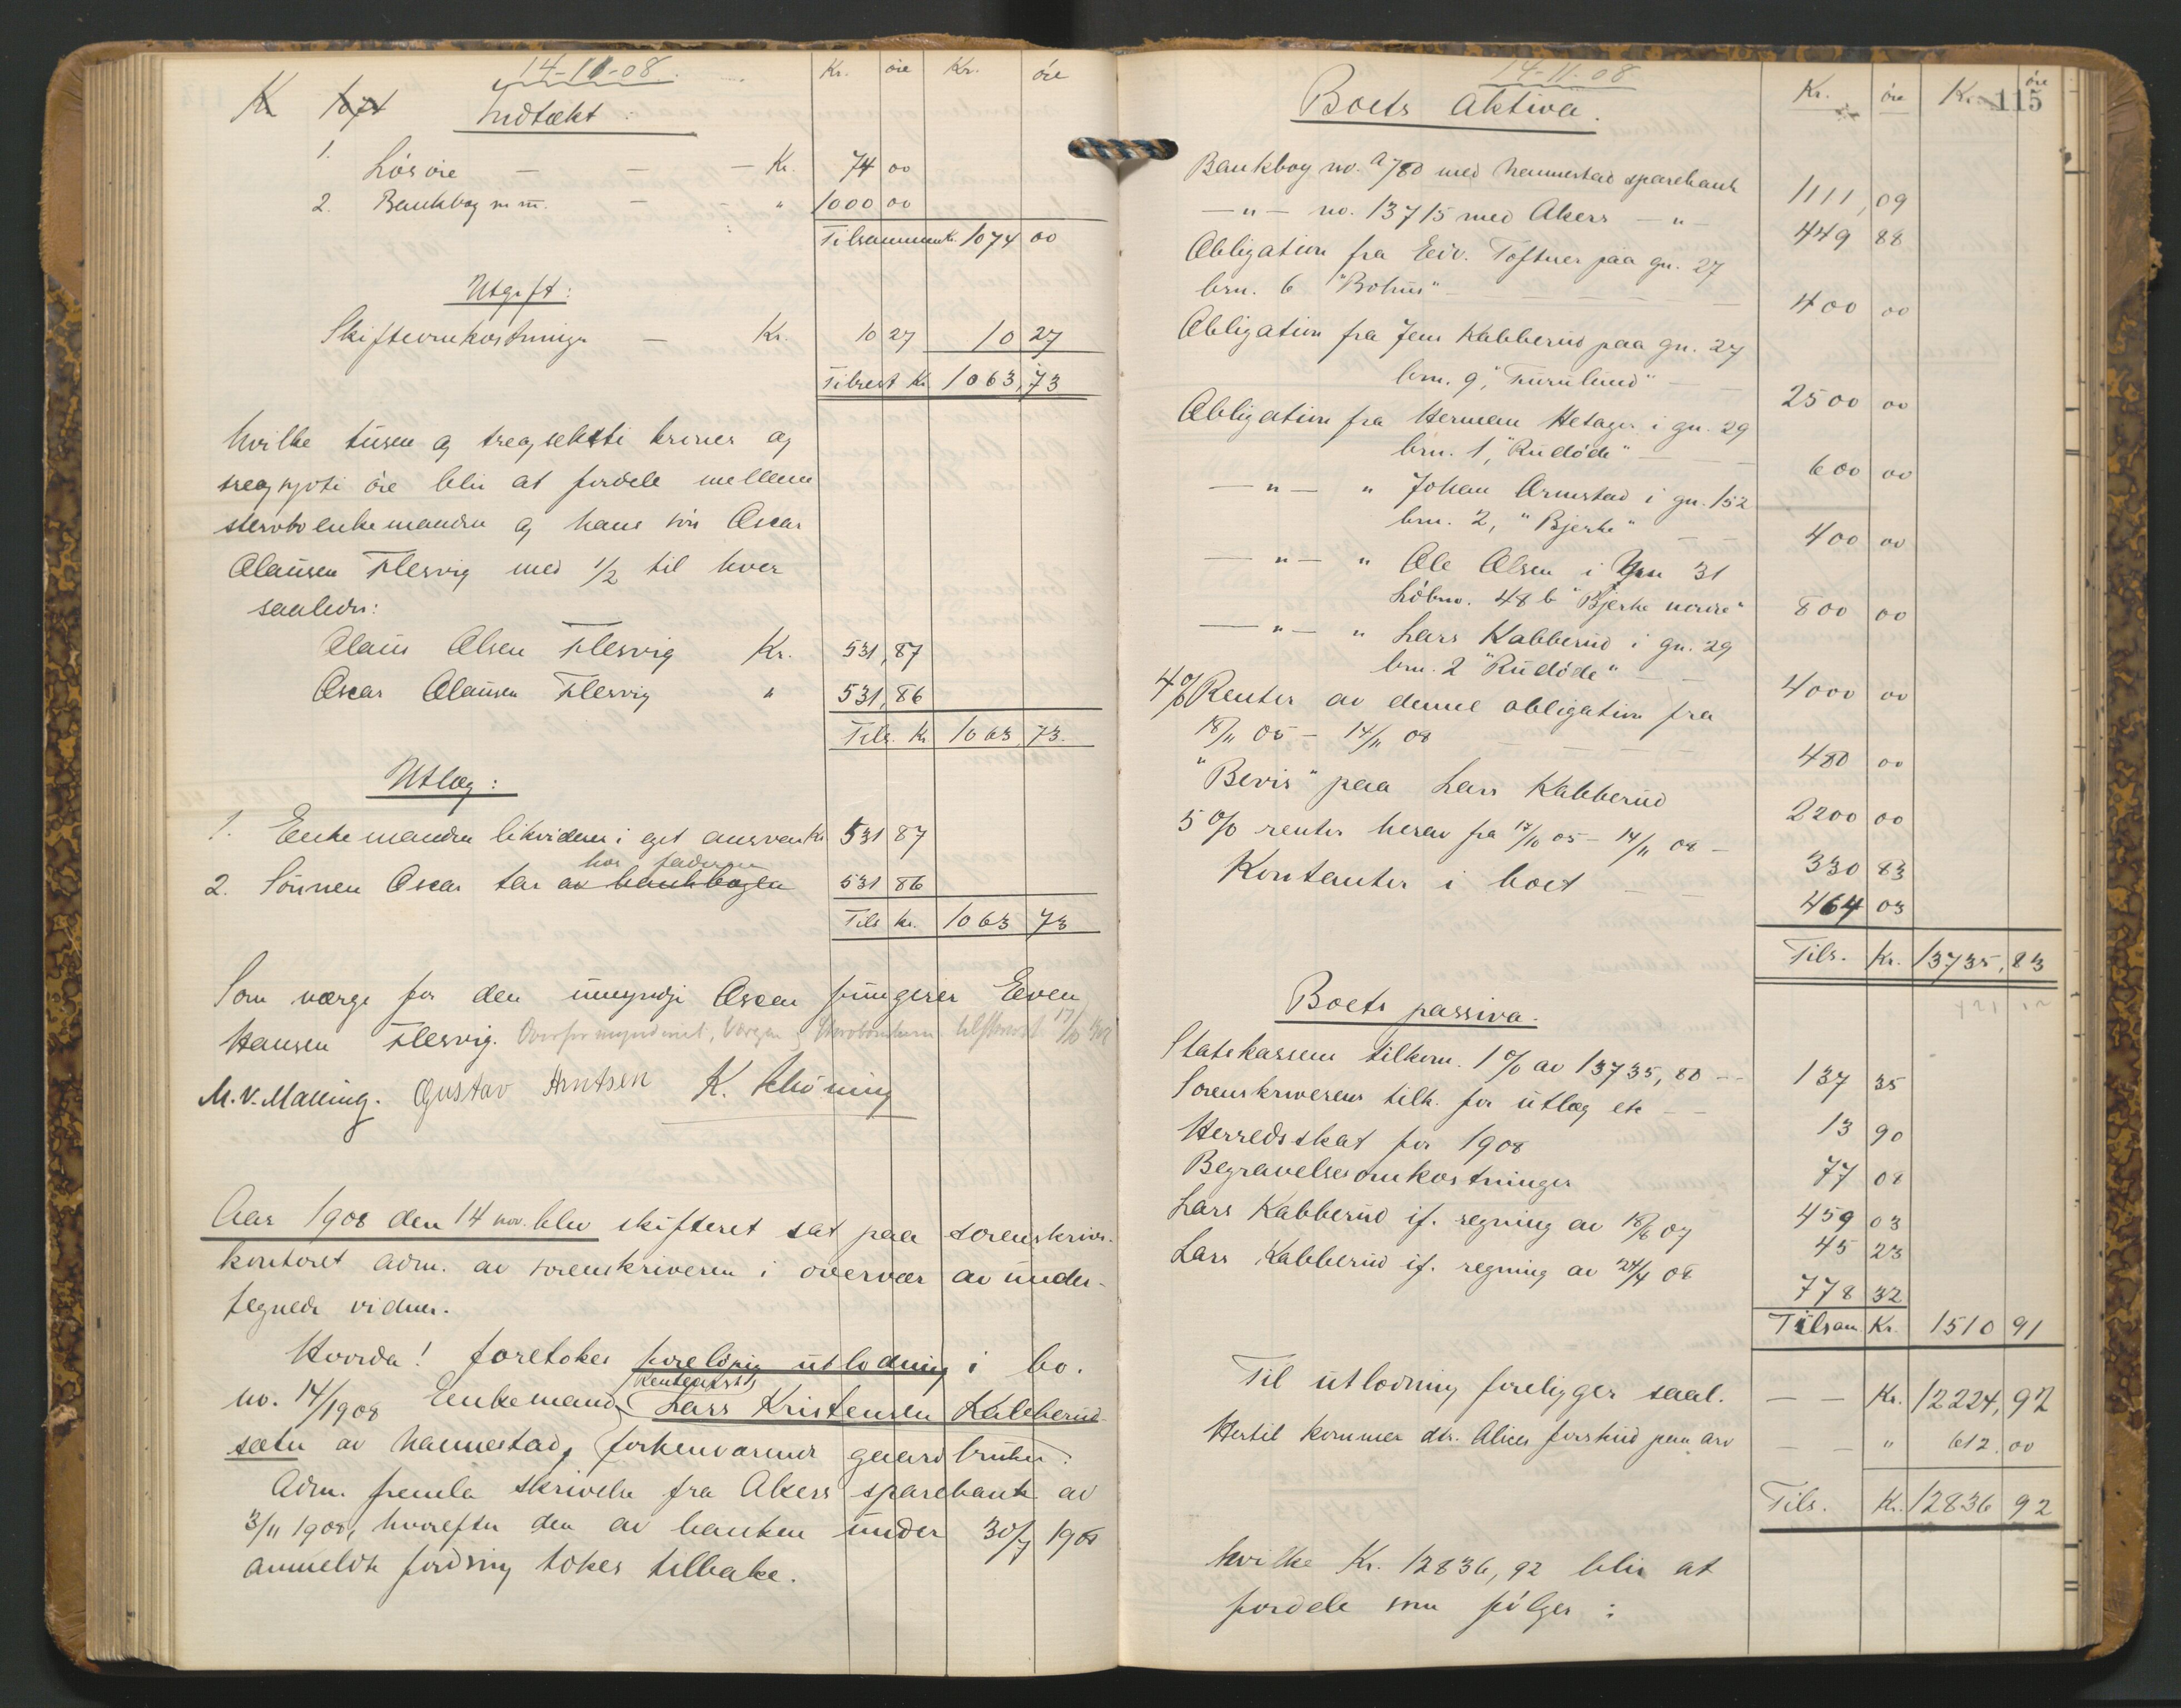 14-11-08.
Kr. øre Kr. øre
K 1074
Indtækt:
1. Løsøre — — — Kr. 74 00
2. Bankbog m.m. — " 1000 00
Tilsammen kr. 1074 00
Utgift:
Skifteomkostninger — Kr. 10 27 10 27
Tilrest Kr. 1063,73
hvilke tusen og treogseksti kroner og
treogsytti øre blir at fordele mellem
stervboenkemanden og hans søn Oscar
Olausen Flesvig med 1/2 til hver
saaledes:
Olaus Olsen Flesvig Kr. 531,87
Oscar Olausen Flesvig " 531,86
Tils. Kr. 1063,73.
Utlæg:
1. Enkemanden likviderer i eget ansvar Kr. 531 87
hos faderen
2. Sønnen Oscar tar av bankbogen 531 86
Tils kr. 1063 73
Som værge for den umyndige Oscar fungerer Even
Hansen Flesvig. Overformynderiet, Værgen tilskrevet 17/10
M.V. Malling. Gustav Arntsen K. Schøning
Aar 1908 den 14 nov. blev skifteret sat paa sorenskriver-
kontoret adm. av sorenskriveren i overvær av under-
tegnede vidner.
Hvorda! foretokes foreløpig utlodning i bo.
no. 14/1908 Enkemand Lars Kristensen Kabberud-
sæter av Nannestad, forhenværende gaardbruker.
Adm. fremla skrivelse fra Akers sparebank av
3/11 1908, hvorefter den av banken under 30/7 1908
anmeldte fordring tokes tilbake.
14-11-08
Kr. øre Kr. øre
115
Boets Aktiva.
Bankbog no. A780 med Nannestad sparebank 1111,09
—"— no. 13715 med Akers —"— 449 88
Obligation fra Edv. Toftner paa gn. 27
brn. 6 "Bohus" — — — 400 00
Obligation fra Jens Kabberud paa gn. 27
brn. 9, "Furulund" — — 2500 00
Obligation fra Herman Hetager i gn. 29
brn. 1, "Rudøde" — — 600 00
—"— " Johan Ormstad i gn. 152
brn. 2, "Bjerke" — 400 00
—"— " Ole Olsen i gn 31
Løbno. 48 b "Bjerke nordre" 800 00
—"— " Lars Kabberud i gn. 29
brn. 2 "Rudøde" — — 4000 00
4% Renter av denne obligation fra
18/11 05 – 14/11 08 — — — 480 00
"Bevis" paa Lars Kabberud 2200 00
5 % renter herav fra 17/10 05 – 14/11 08 – 330 83
Kontanter i boet — 464 03
Tils. Kr. 13735,83
Boets passiva.
Statskassen tilkom. 1 % av 13735,80 -- 137 35
Sorenskriveren tilk. for utlæg etc — — 13 90
Herredsskat for 1908 77 08
Begravelsesomkostninger 459 03
Lars Kabberud if. regning av 18/6 07 45 23
Lars Kabberud if. regning av 24/4 08 778 32
Tilsam Kr. 1510 91
Til utlodning foreligger saal. — — Kr. 12224,92
Hertil kommer dtr. Alices forskud paa arv — — " 612.00
Tils. Kr. 12836 92
hvilke Kr. 12836,92 blir at
fordele som følger: